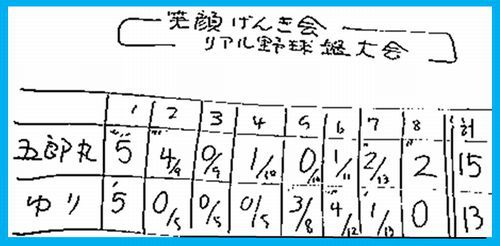 笑顔げんき会
リアル野球盤大会
1 2 3 4 5 6 7 8 計
五郎丸 5 4/9 0/9 1/10 0/10 1/11 2/13 2 15
ゆり 5 0/5 0/5 0/5 3/8 4/12 1/13 0 13